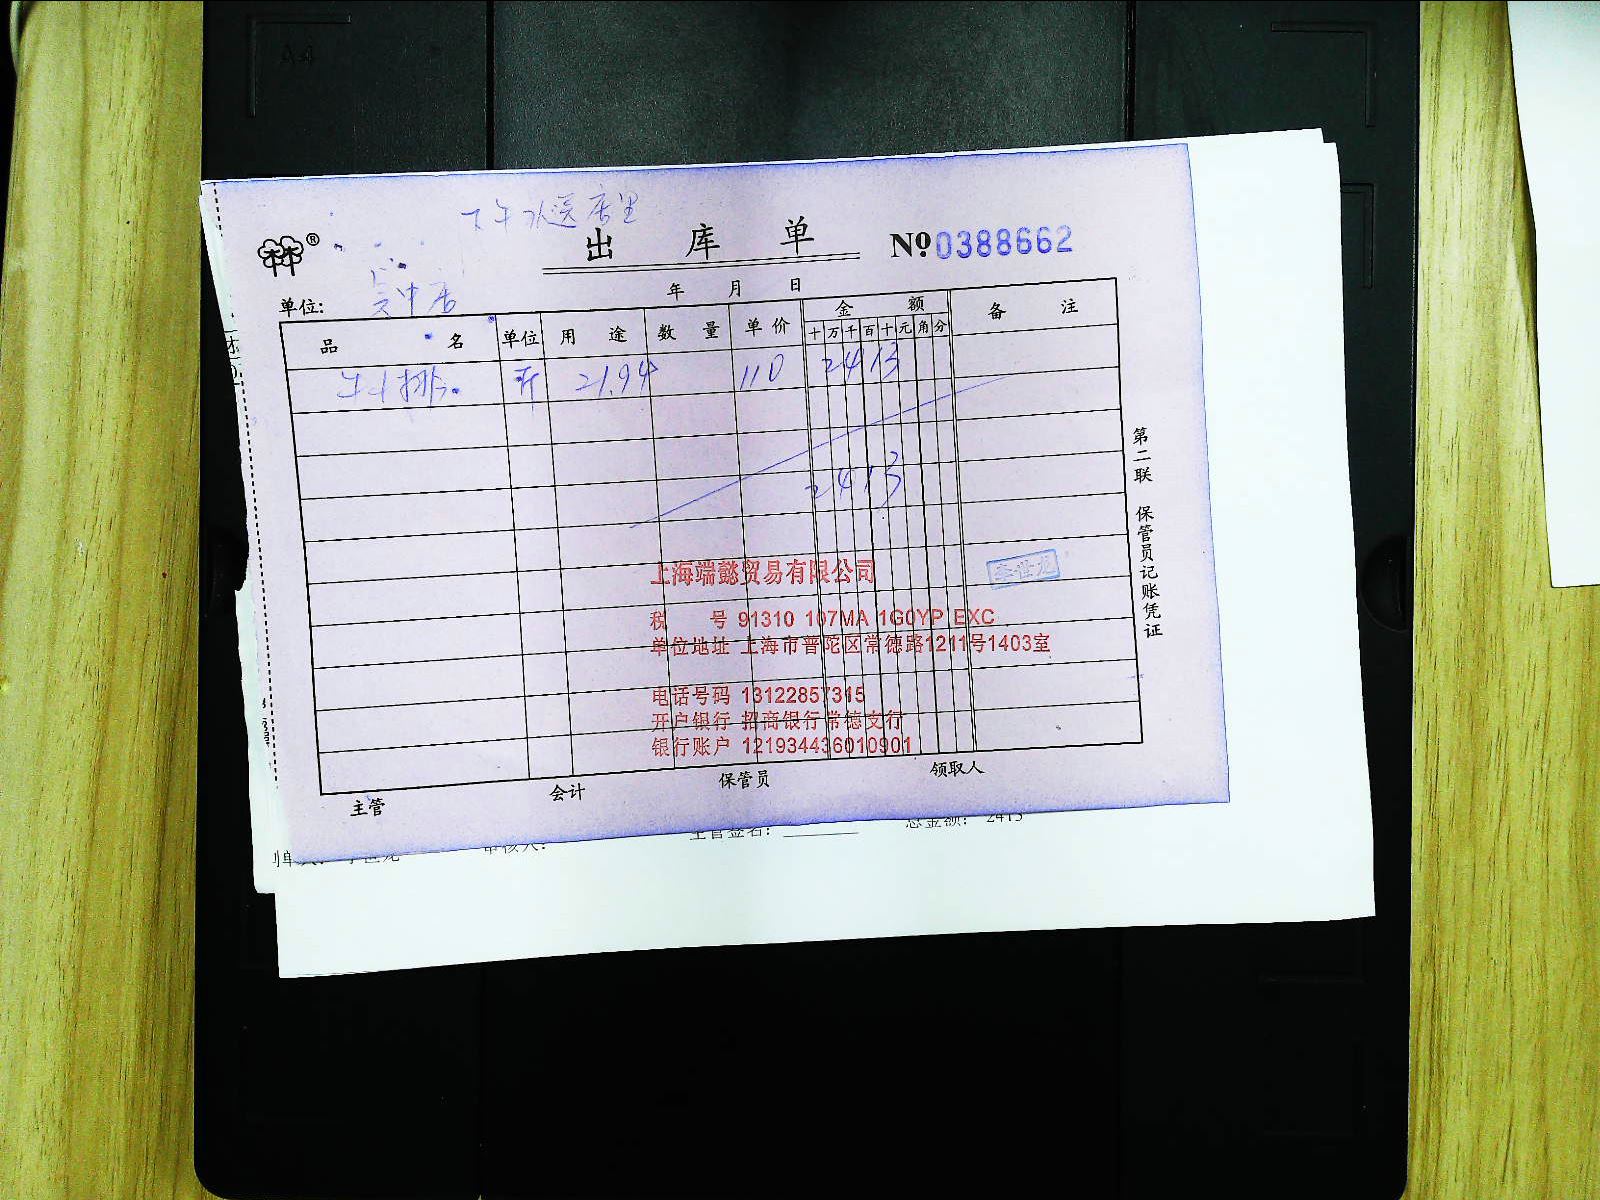 下午 送店里
出库单 №0388662
单位: 吴中店
年 月 日
品名 单位 用途 数量 单价 金额 备注
十万千百十元角分
牛排 斤 21.94 110 2413
2413
上海端懿贸易有限公司
李世龙
税 号 91310 107MA 1G0YP EXC
单位地址 上海市普陀区常德路1211号1403室
电话号码 13122857315
开户银行 招商银行常德支行
银行账户 121934436010901
主管 会计 保管员 领取人
第二联 保管员记账凭证
主管签名: 总金额: 2413
审核人: